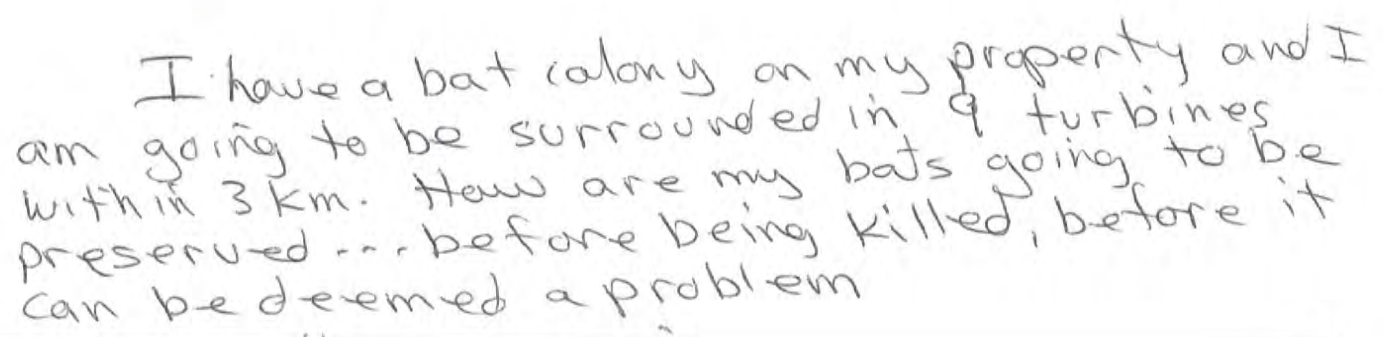 I have a bat colony on my property and I
am going to be surrounded in 9 turbines
within 3 km. How are my bats going to be
preserved ... before being killed, before it
can be deemed a problem